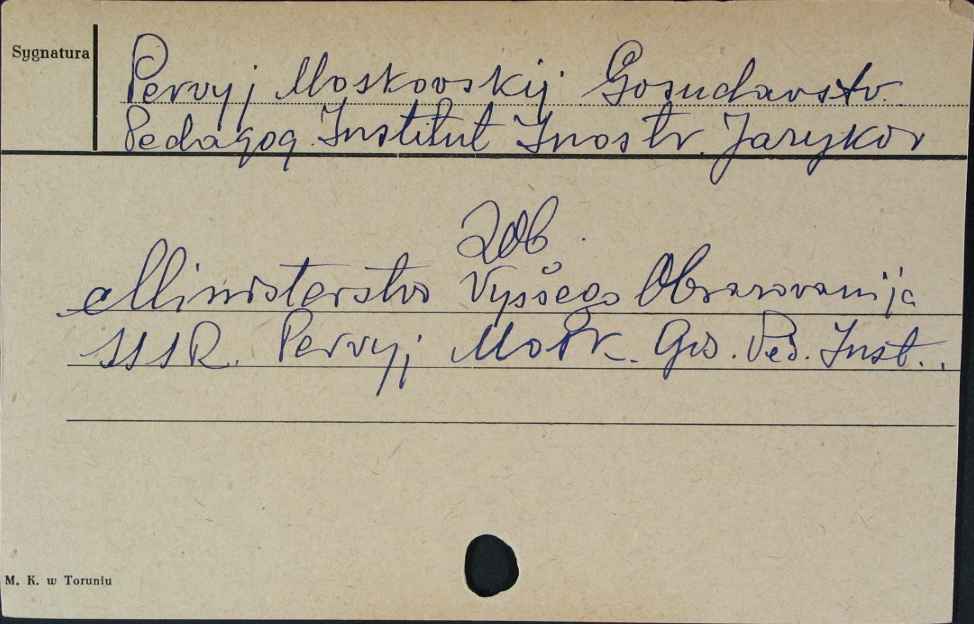 Sygnatura
Pervyj Moskovskij Gosudarstv.
Pedagog. Institut Inostr. Jazykov
Zob.
Ministerstvo Vysšego Obrazovanija
SSSR. Pervyj Mosk. Gos. Ped. Inst..
M. K. w Toruniu